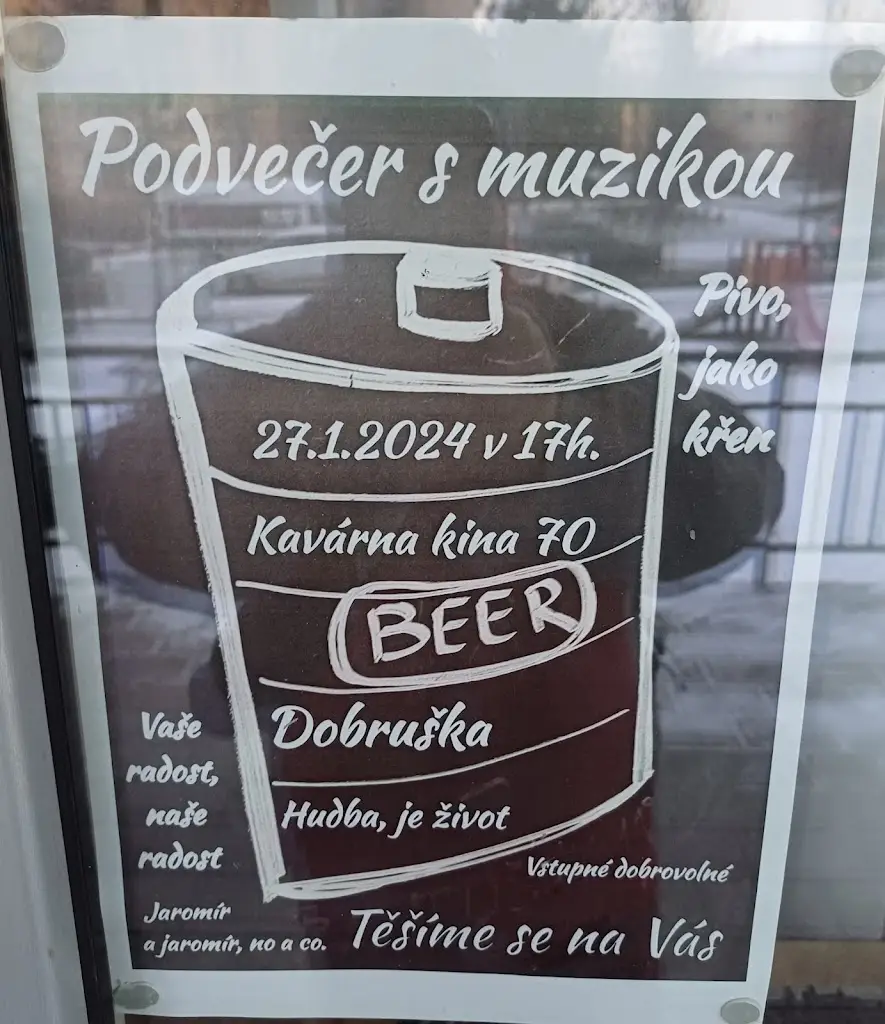 Podvečer s muzikou
Pivo,
jako
křen
27.1.2024 v 17h.
Kavárna kina 70
BEER
Dobruška
Hudba, je život
Vaše
radost,
naše
radost
Vstupné dobrovolné
Jaromír
a jaromír, no a co.
Těšíme se na Vás